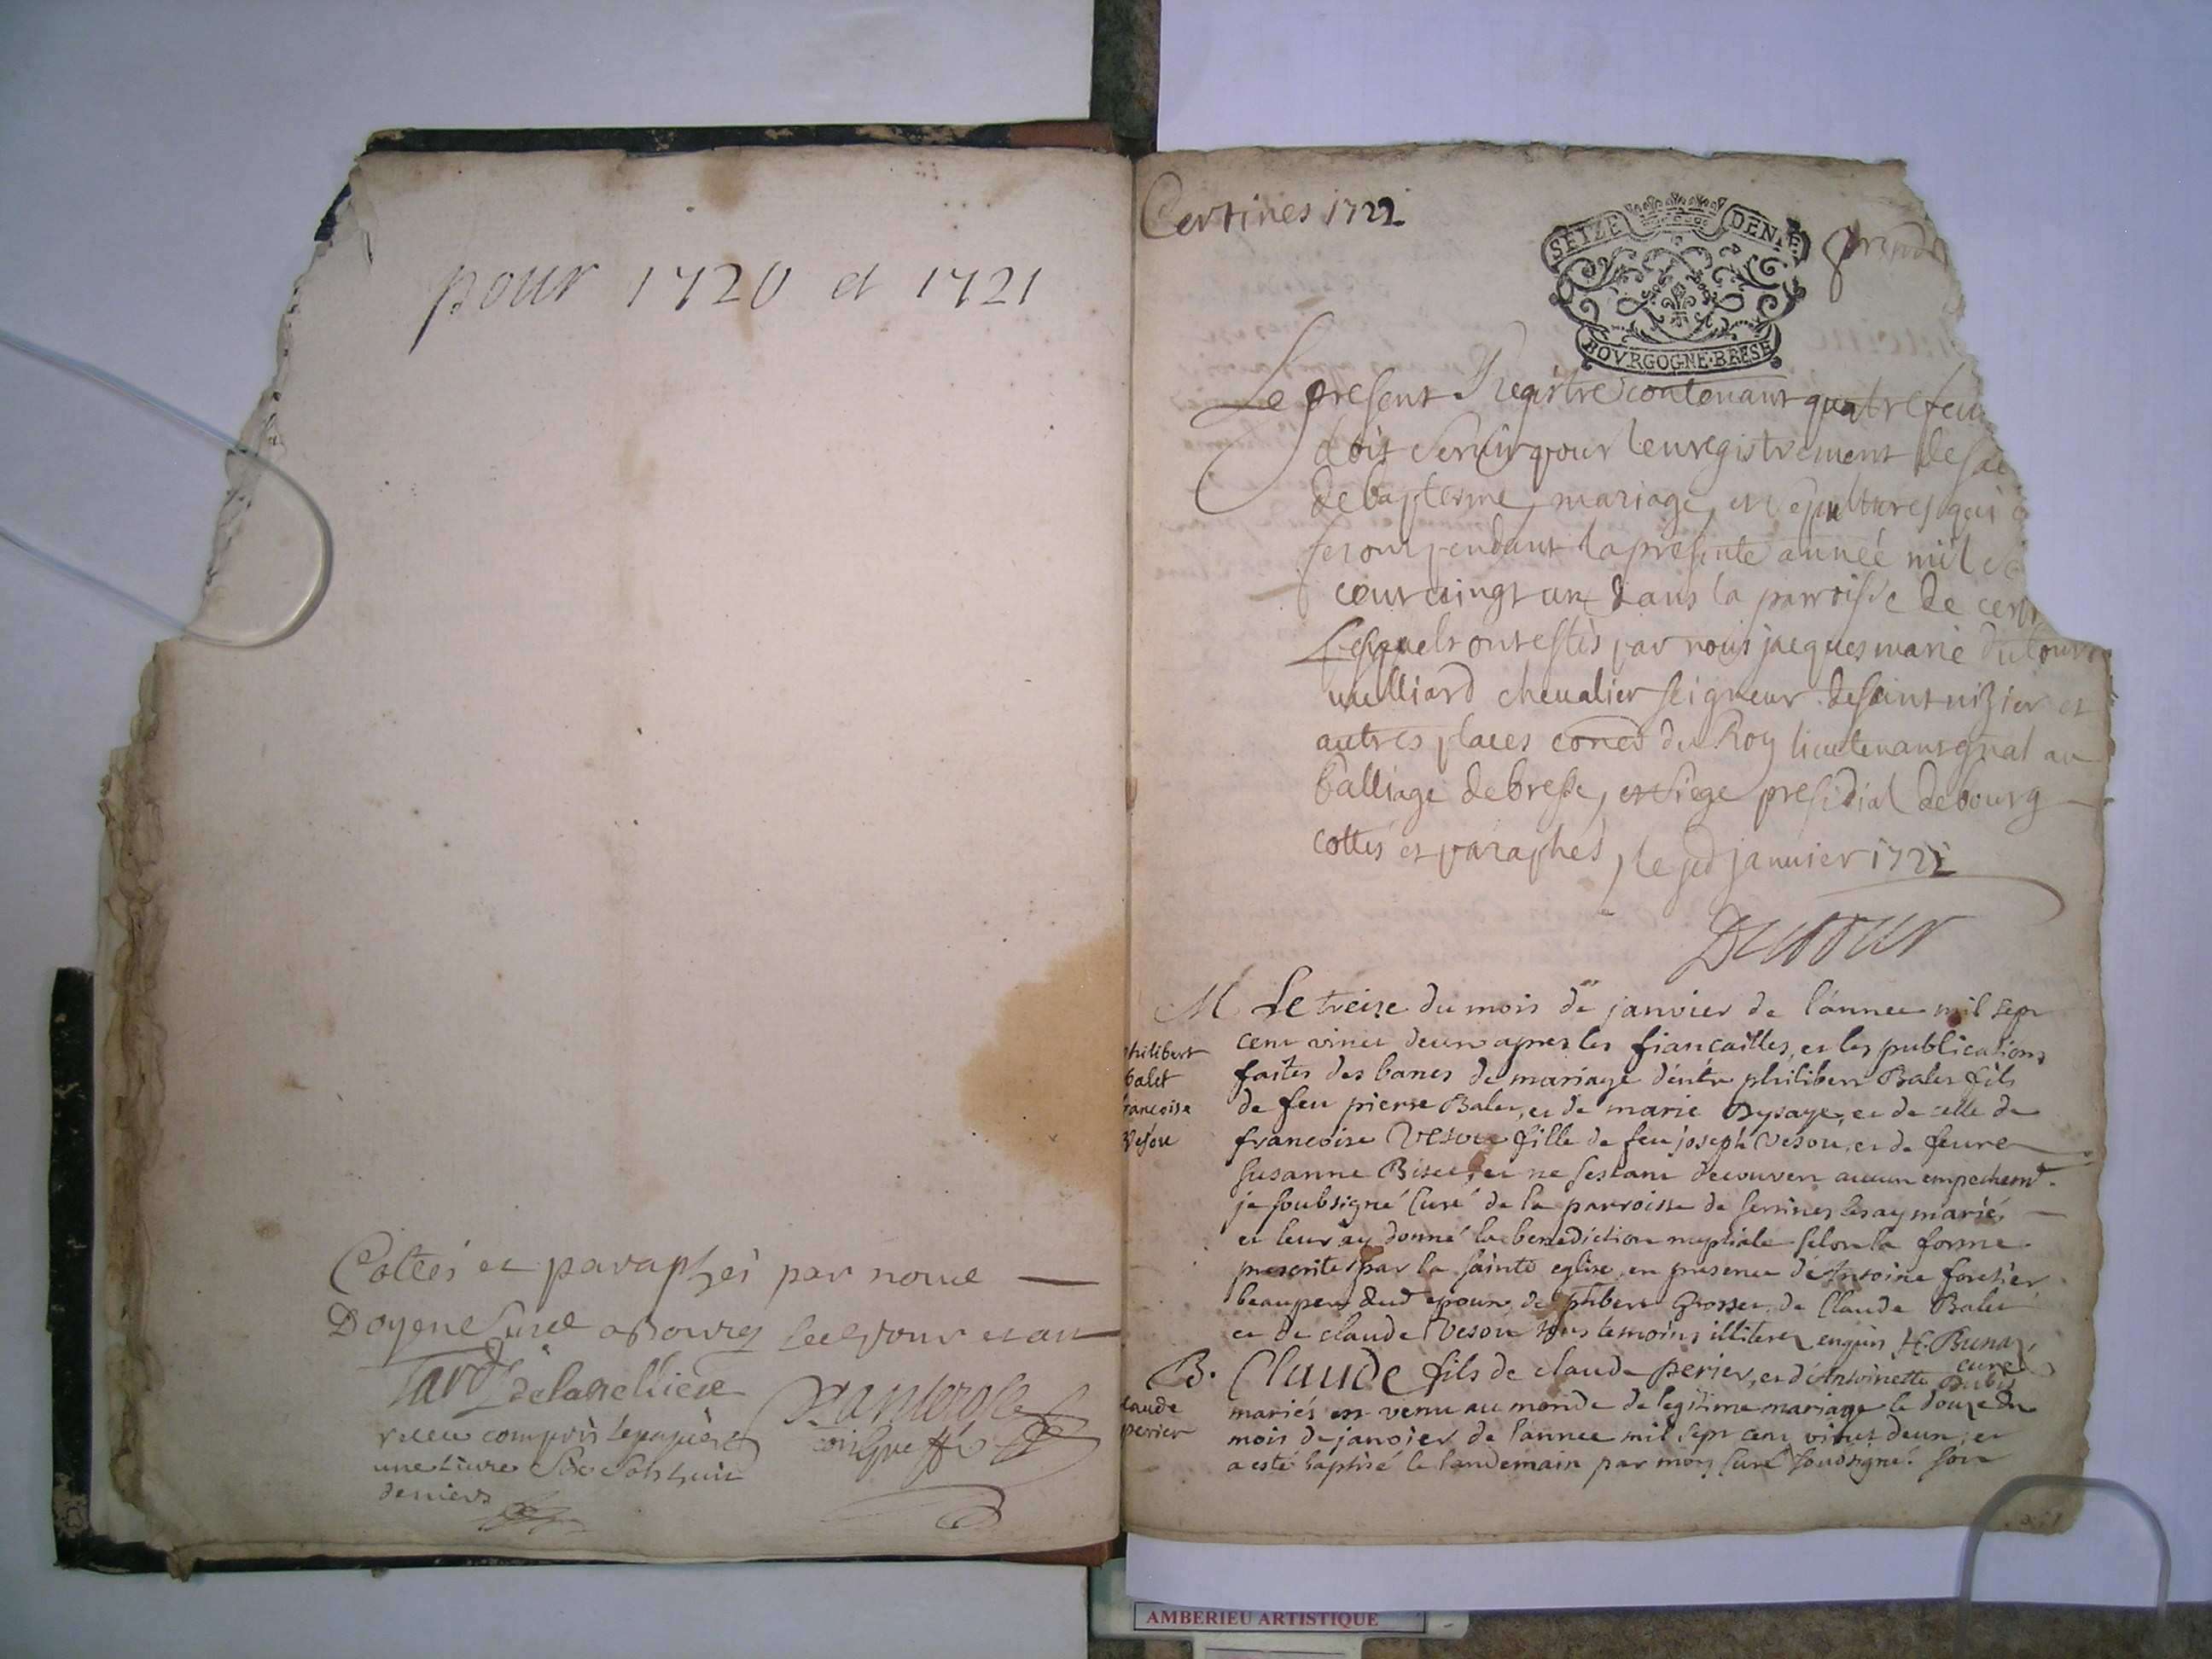 pour 1720 et 1721
Cottés et paraphés par nous
Doyene a Bourg
une Livre Six Sols huit
deniers
Certines 1722
SEIZE DENIE
BOVRGOGNE·BRESE
Le present Registre contenant quatre feu
doit Servir pour l'enregistrement des ac
de baptesme, mariage, et sepultures qui
seront pendant la presente année mil
cent vingt un dans la parroisse de cert
Lesquels ont estés par nous jacques marie dutour
vuilliard chevalier seigneur de saint nizier et
autres places coner du Roy lieutenant gnal au
balliage de bresse, et Siege presidial de bourg
cottés et paraphes, le janvier 1721
Dutour
M Le treize du mois de janvier de l'année mil sept
cent vint deux apres les fiançailles, et les publications
faites des bancs de mariage d'entre philibert Balet fils
de feu pierre Balet, et de marie et de celle de
francoise Vesou fille de feu joseph Vesou, et de feue
susanne Biset, et ne s'estant decouvert aucun empechemt
je soubsigné Curé de la parroisse de sertines les ay mariés
et leur ay donné la benediction nuptiale selon la forme
prescrite par la sainte eglise, en presence de Antoine forestier
beaupere dud epoux, de phibert Grosset, de Claude Balet
et de claude Vesou tous temoins illiteres enquis H. Buna
curé
philibert
balet
francoise
Vesou
B. Claude fils de claude perier, et d'Antoinette Dubis
mariés est venu au monde de legitime mariage le douze du
mois de janvier de l'année mil sept cent vint deux, et
a esté baptisé le landemain par moy Curé sousigné. son
claude
perier
AMBERIEU ARTISTIQUE